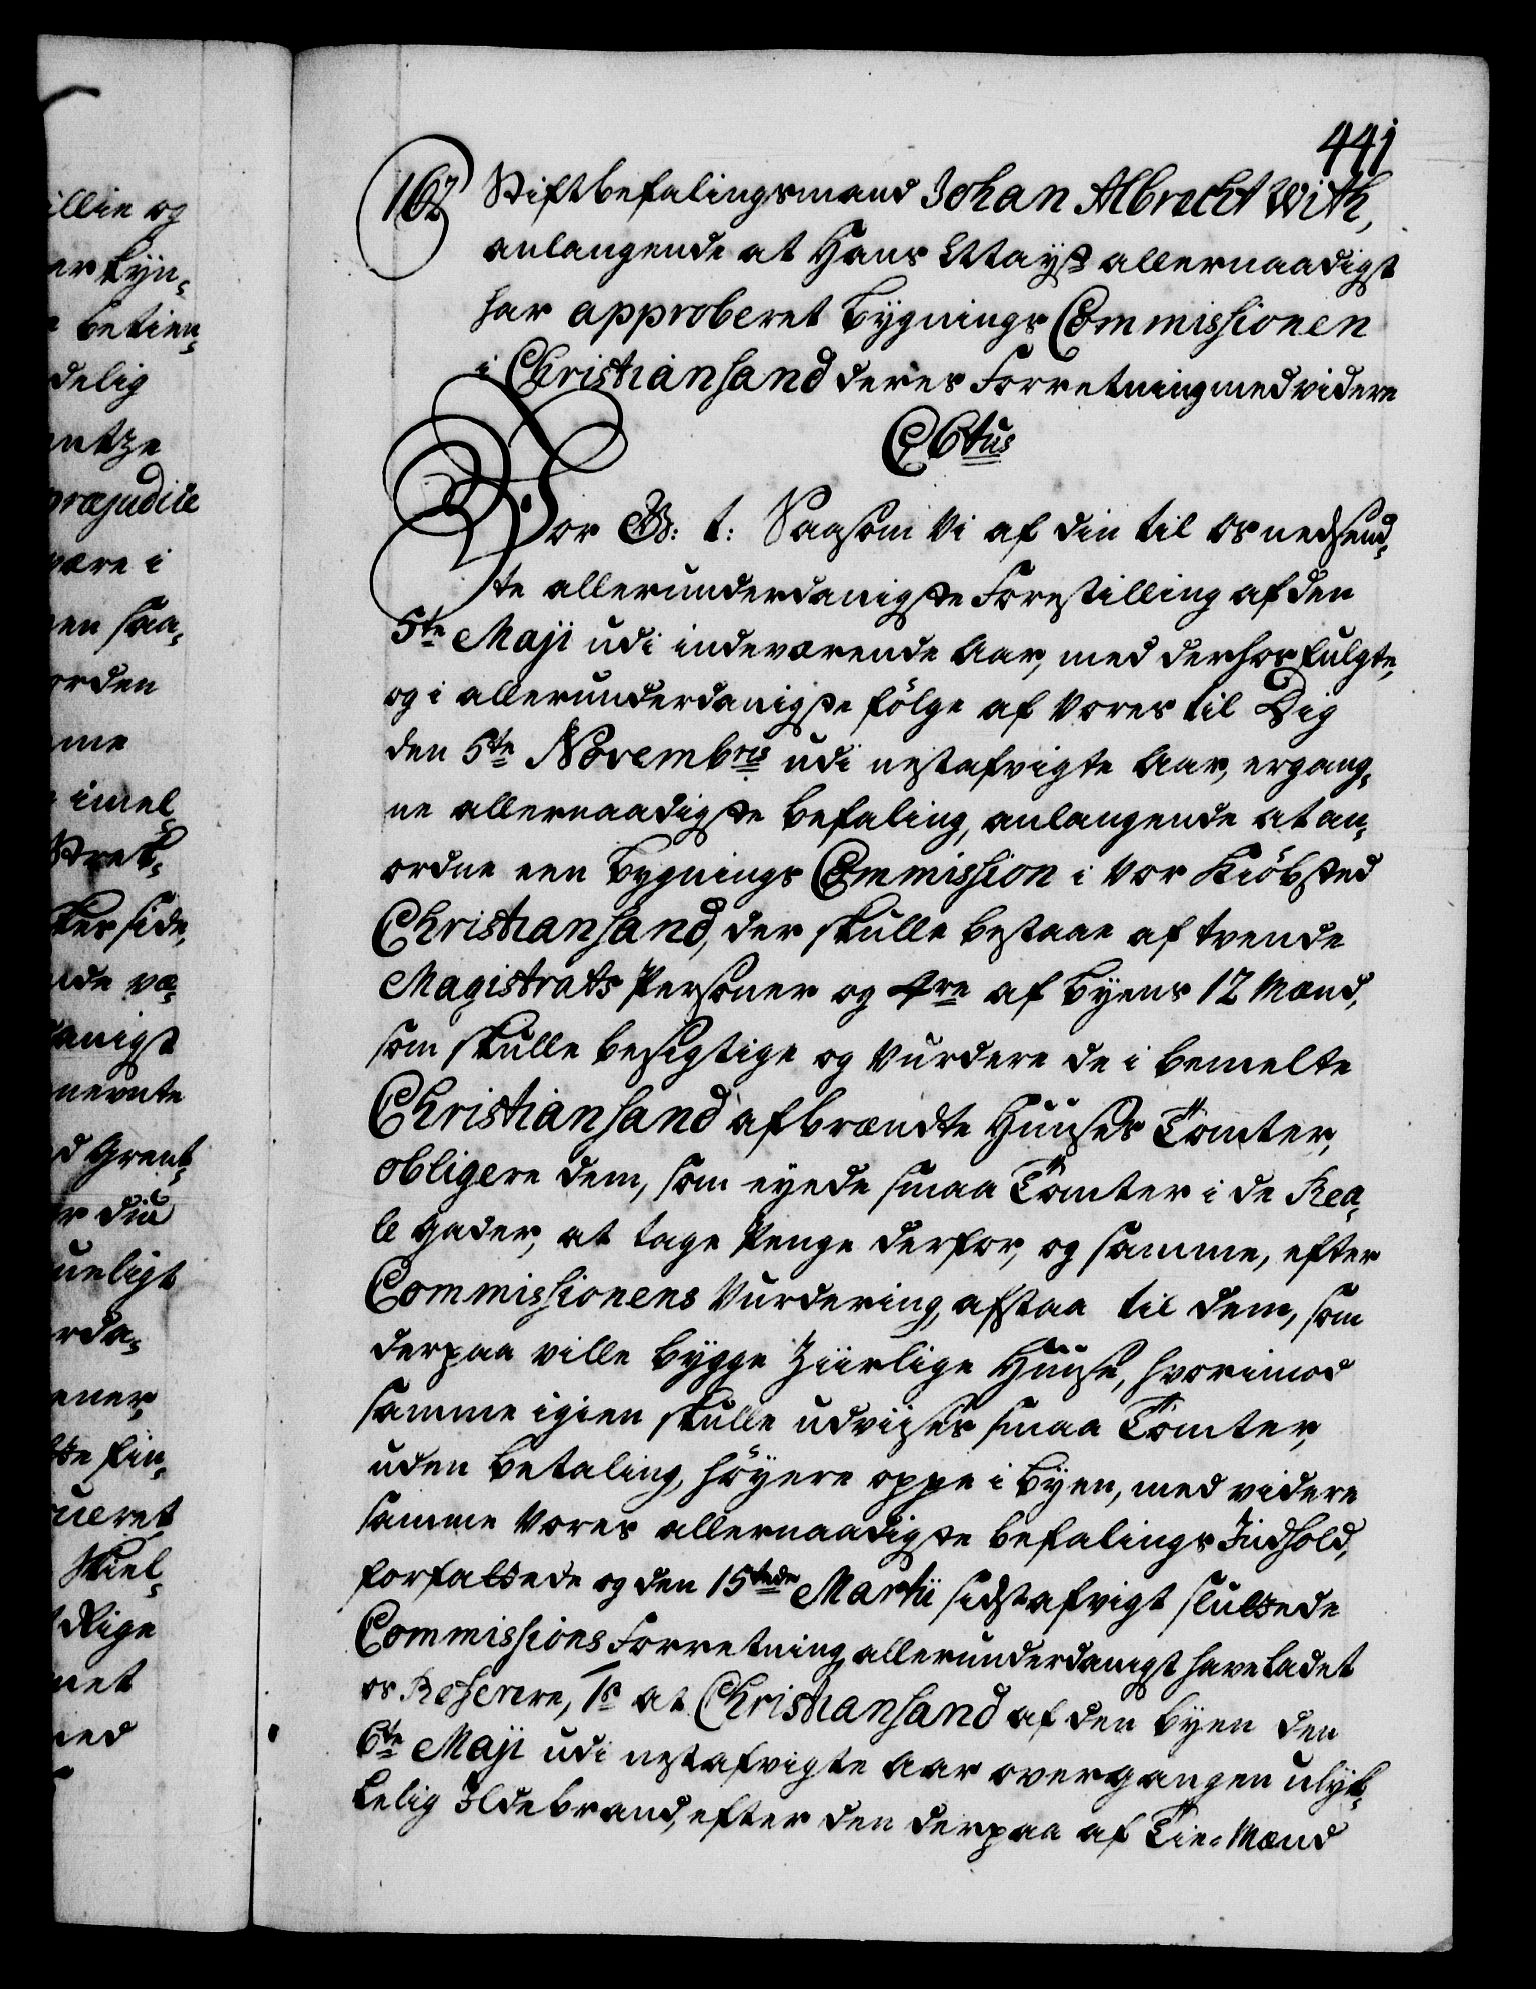 441
162 Stiftbefalingsmand Johan Albrecht With,
anlangende at Hans Mayst allernaadigst
har approberet bygnings Commissionen
i Christiansand deres Forretning med videre
C 6tus
Vor G: t: Saasom Vi af din til os nedsend,
te allerunderdanigste Forestilling af den
5te Maji udi indeværende Aar, med derhos fulgte,
og i allerunderdanigste fölge af Vores til Dig
den 5te Novembris udi nestafvigte Aar, ergang,
ne allernaadigste befaling, anlangende at an,
ordne een bygnings Commission i Vor Kiöbsted
Christiansand, der skulle bestaae af tvende
Magistrats Personer og 4re af byens 12 Mænd,
som skulle besigtige og Vurdere de i bemelte
Christiansand afbrændte Huuses Tomter,
obligere dem, som eyede smaa Tomter i de Rea,
le gader, at tage Penge derfor, og samme, efter
Commissionens Vurdering, afstaa til dem, som
derpaa ville bygge Ziirlige Huuse, hvorimod
samme igien skulle udviises smaa Tomter,
uden betaling, höyere oppe i byen, med videre
samme Vores allernaadigste befalings Indhold,
forfattede og den 15tede Martii sidstafvigt sluttede
Commissions Forretning allerunderdanigst have ladet
os Referere, 1s at Christiansand af den byen den
6te Maji udi nestafvigte Aar overgangen ulyk,
kelig Ildebrand, efter den derpaa af Tie Mænd
illie og
er kyn,
betien,
delig
præjudice
være i
en saa,
orden
imel,
anigst
nevnte
r din
ueligt
rda,
ener,
ueret
Skiel,
Rige
net
ned